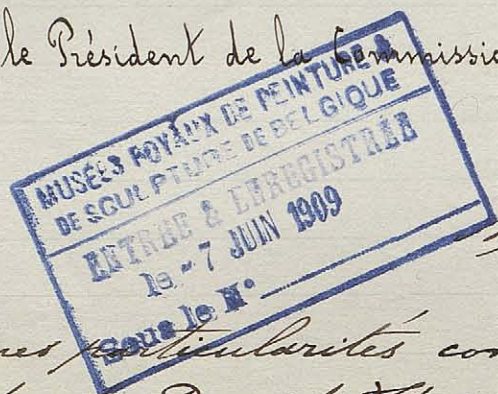 le Président de la Commissio
MUSÉES ROYAUX DE PEINTURE &
DE SCULPTURE DE BELGIQUE
ENTRÉE & ENREGISTRÉE
le - 7 JUIN 1909
Sous le N°
nes particularités con